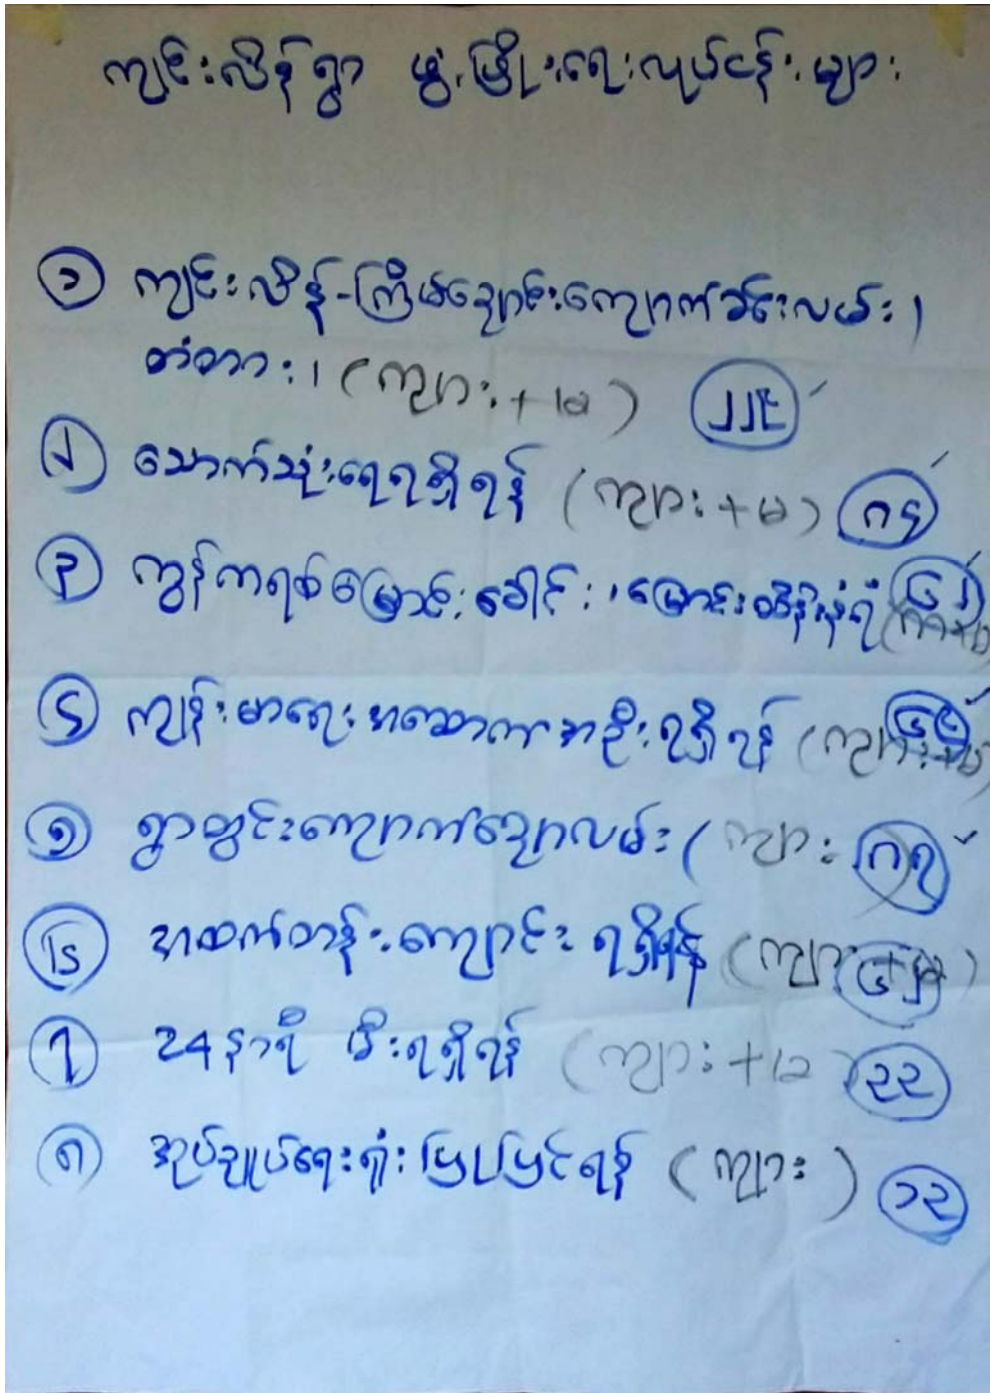 ကျင်းလိန်ရွာ ဖွံ့ဖြိုးရေးလုပ်ငန်းများ
၁ ကျင်းလိန်-ကြိမ်ချောင်းကျောက်ခင်းလမ်း၊
တံတား၊ (ကျား+မ)
၂ သောက်သုံးရေရရှိရန် (ကျား+မ) ၈၄
၃ ကွန်ကရစ်မြောင်း
၄ ကျန်းမာရေးအထောက်အကူရရှိရန် (ကျား+မ)
၅ ရွာတွင်းကျောက်ချောလမ်း (ကျား
၆ အထက်တန်းကျောင်း ရရှိရန် (ကျား+မ)
၇ 24 နာရီ မီးရရှိရန် (ကျား+မ ၃၃
၈ အုပ်ချုပ်ရေးရုံး ပြုပြင်ရန် (ကျား) ၁၃